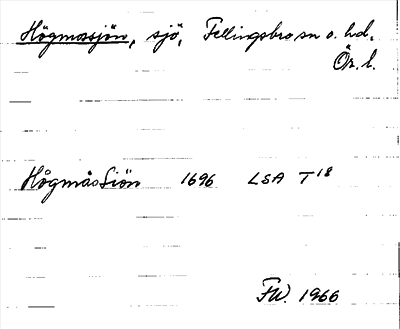 Högmossjön, sjö, Fellingsbro sn o. hd,
Ör. l.
HögmåsSiön 1696 LSA T18
FW. 1966